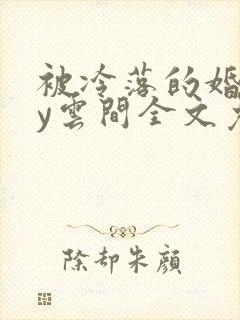 被冷落的婚
y雲間全文
除却朱顔